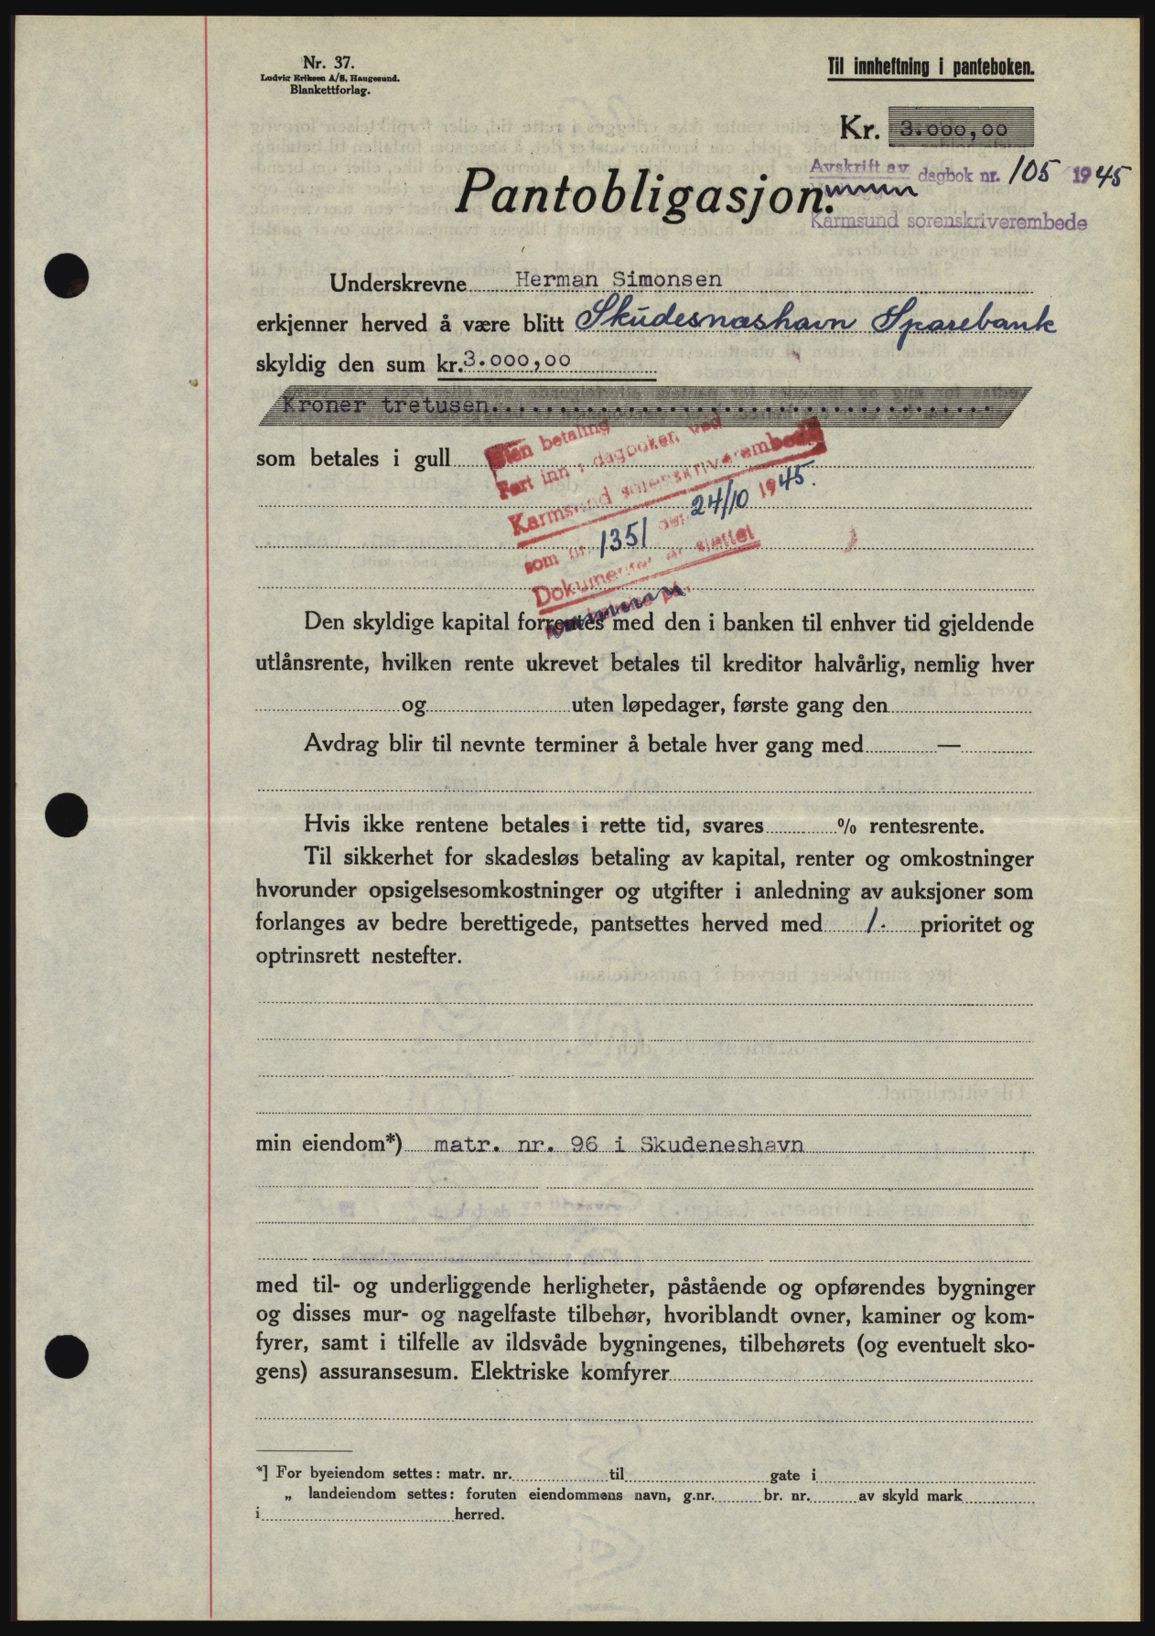 Nr. 37.
Ludvig Eriksen A/S, Haugesund.
Blankettforlag.
Til innheftning i panteboken.
Kr. 3.000,00
Avskrift av dagbok nr. 105 1945
Karmsund sorenskriverembede
Pantobligasjon.
Underskrevne Herman Simonsen
erkjenner herved å være blitt Skudesneshavn Sparebank
skyldig den sum kr. 3.000,00
Kroner tretusen
som betales i gull
Uten betaling
Ført inn i dagboken ved
Karmsund sorenskriverembede
som nr. 1351 den 24/10 1945.
Dokumentet er slettet
Den skyldige kapital forrentes med den i banken til enhver tid gjeldende
utlånsrente, hvilken rente ukrevet betales til kreditor halvårlig, nemlig hver
og uten løpedager, første gang den
Avdrag blir til nevnte terminer å betale hver gang med —
Hvis ikke rentene betales i rette tid, svares % rentesrente.
Til sikkerhet for skadesløs betaling av kapital, renter og omkostninger
hvorunder opsigelsesomkostninger og utgifter i anledning av auksjoner som
forlanges av bedre berettigede, pantsettes herved med 1. prioritet og
optrinsrett nestefter.
min eiendom*) matr. nr. 96 i Skudeneshavn
med til- og underliggende herligheter, påstående og opførendes bygninger
og disses mur- og nagelfaste tilbehør, hvoriblandt ovner, kaminer og kom-
fyrer, samt i tilfelle av ildsvåde bygningenes, tilbehørets (og eventuelt sko-
gens) assuransesum. Elektriske komfyrer
*] For byeiendom settes: matr. nr. til gate i
„ landeiendom settes: foruten eiendommens navn, g.nr. br. nr. av skyld mark
i herred.